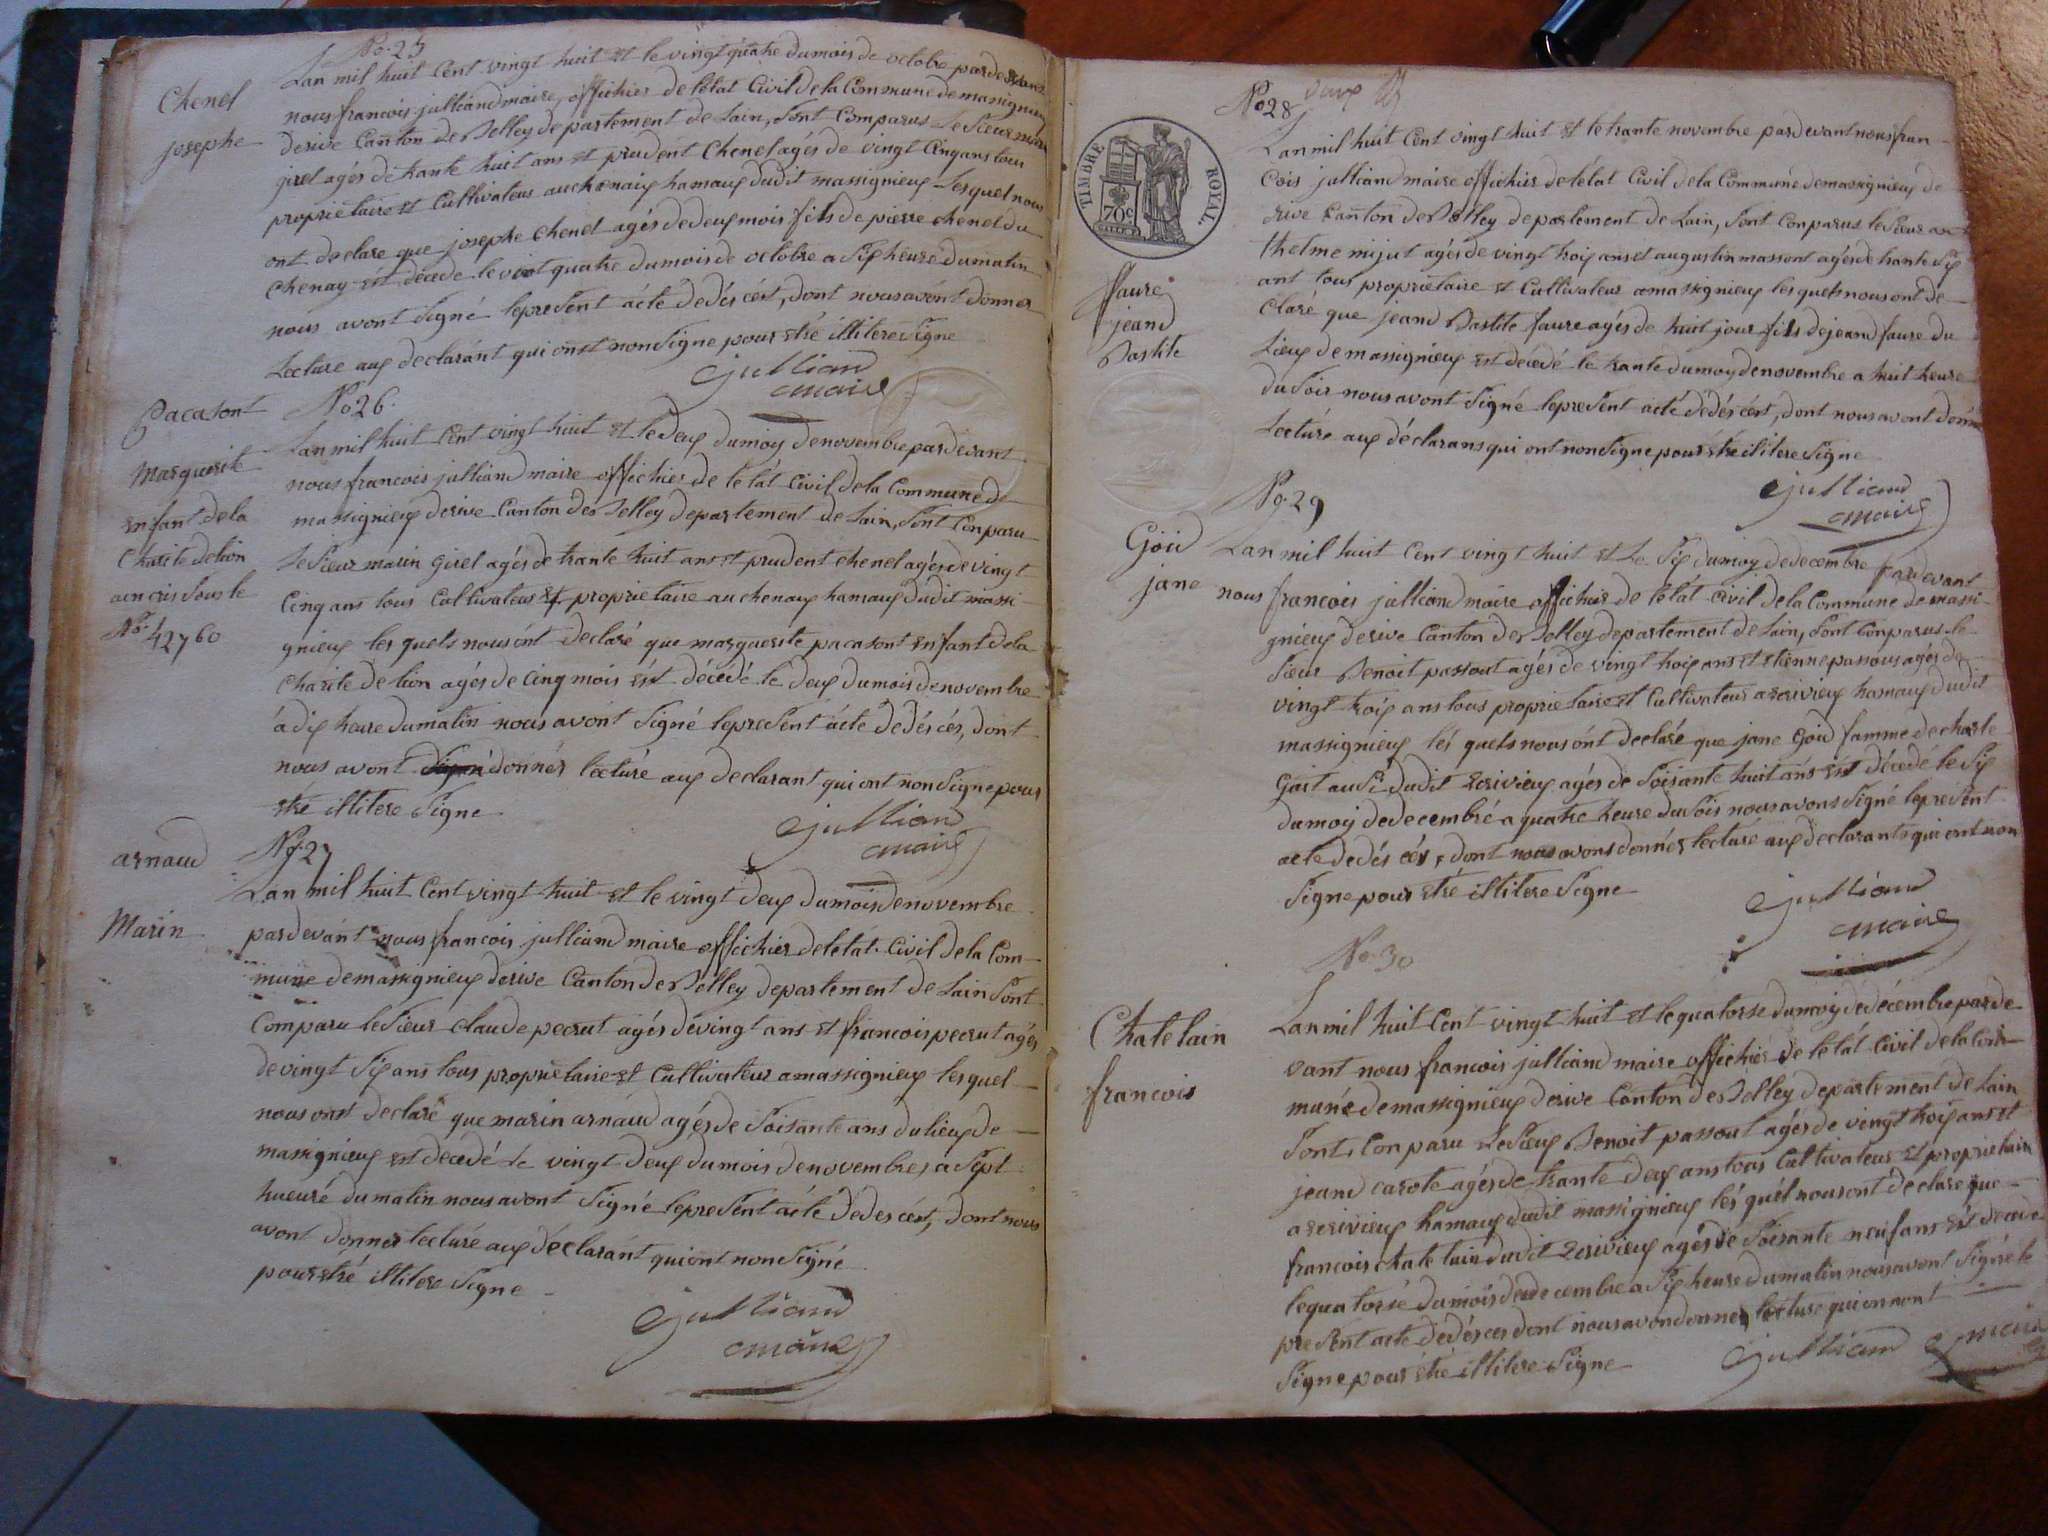 No. 25
Chenel
josephe
Lan mil huit Cent vingt huit Et le vingt quatre dumois de octobre pardevant
nous francois julliand maire, offichier de létat Civil dela Commune demassignieux
derive Canton de Belley departement de Lain, sont Comparus le sieur marin
girel agés de trante huit ans Et prudent Chenel agés de vingt Cinq ans tous
proprietaire Et Cultivateur au chenaix hamaux dudit massignieux lesquel nous
ont declare que josephe chenel agés de deux mois fils de pierre chenel du
chenay Est décede le vint quatre dumois de octobre a six heure du matin
nous avont signé lepresent acté dedés cést, dont nous avont donner
Lecture aux declarant qui onst non signe pour etré illitere signe
julliand
maire
No 26.
Pacasont
Marguerite
Enfant dela
Charite de lion
aincris sous le
No. 42760
Lan mil huit Cent vingt huit Et le deux du moy denovembre pardevant
nous francois julliand maire offichier de létat Civil dela Commune de
massignieux derive Canton de Belley departement de Lain, sont Comparu
le sieur marin girel agés de trante huit ans et prudent chenel agés de vingt
Cinq ans tous Cultivateur Et proprietaire au chenaux hamaux dudit massi
gnieux les quels nous ónt declaré que marguerite pacasont Enfant dela
Charite de lion agés de Cinq mois Est décédé le deux du mois denovembre
á dix heure dumatin nous avont signé lepresent acté dedés cés, dont
nous avont donnér lecturé aux declarant qui ont non signe pour
étré illitere signe
julliand
maire
No. 27
arnaud
Marin
Lan mil huit Cent vingt huit Et le vingt deux dumois denovembre
pardevant nous francois julliand maire offichier de létat Civil dela Com
mune demassignieux derive Canton de Belley departement de Lain sont
Comparu le sieur claude pecrut agés dévingt ans Et francois pecrut agés
de vingt six ans tous proprietaire Et Cultivateur amassignieux lesquel
nous onst declaré que marin arnaud agés de soisante ans du lieux de
massignieux Est decedé le vingt deux dumois denovembre, a sept
hueuré dumatin nous avont signé lepresent acté dédes cést, dont nous
avont donner lecturé aux déclarant qui ont non signé
pour etré illitere signe
julliand
maire
No 28
TIMBRE ROYAL
70c
ffaure
jeand
Bastite
Lan mil huit Cent vingt huit Et le trante novembre pardevant nous fran
cois julliand maire offichier de létat Civil dela Commune demassignieux de
rive Canton de Belley departement de Lain, sont Conparus le sieur an
thelme mijut agés de vingt troix ans et augustin massont agés de trante six
ant tous proprietaire Et Cultivateur amassignieux les quels nous ont de
claré que jeand Bastite faure agés de huit jour fils dejeand faure du
Lieux de massignieux Est decedé le trante du moy denovembre a huit heure
du soir nous avont signé lepresent acté dédés cést, dont nous avont donné
Lecturé aux déclarans qui ont non signe pour étré ilitere signe
julliand
maire
No. 29
Goid
jane
Lan mil huit Cent vingt huit Et Le six dumoy dedecembre pardevant
nous francois julliand maire offichier de létat Civil dela Commune de massi
gnieux derive Canton de Belley departement de Lain, sont Comparus le
sieur Benoit passout agés de vingt troix ans Et Etienne passous agés de
vingt troix ans tous proprietaire Et Cultivateur a ecrivieux hamaux dudit
massignieux lés quels nous ónt declaré que jane goid famme de charle
gait ausi dudit Ecrivieux agés de soisante huit áns Est décédé le six
dumoy dedecembré a quatre heure dusoir nous avons signé lepresent
acte dedés cés, dont nous avons donnér lecturé aux declarants qui ont non
signe pour Etré illitere signe
julliand
maire
No. 30
Chatelain
francois
Lan mil huit Cent vingt huit Et le quatorse dumoy dedécembre parde
vant nous francois julliand maire offichier de létat Civil dela Com
muné demassignieux derive Canton de Belley departement de Lain
sont Conparu Le sieux Benoit passout agés de vingt troix ans et
jeand carote agés de trante deux ans tous Cultivateur Et proprietaire
a ecrivieux hamaux dudit massignieux lés quél nous ont declare que
francois chatelain dudit Ecrivieux agés de soisante neuf ans Est décédé
le quatorsé dumois dedecembre a six heure dumatin nous avont signé le
present acte dedés ces dont nous avon donner lecture qui onnont
signe pour étré illitere signe
julliand maire